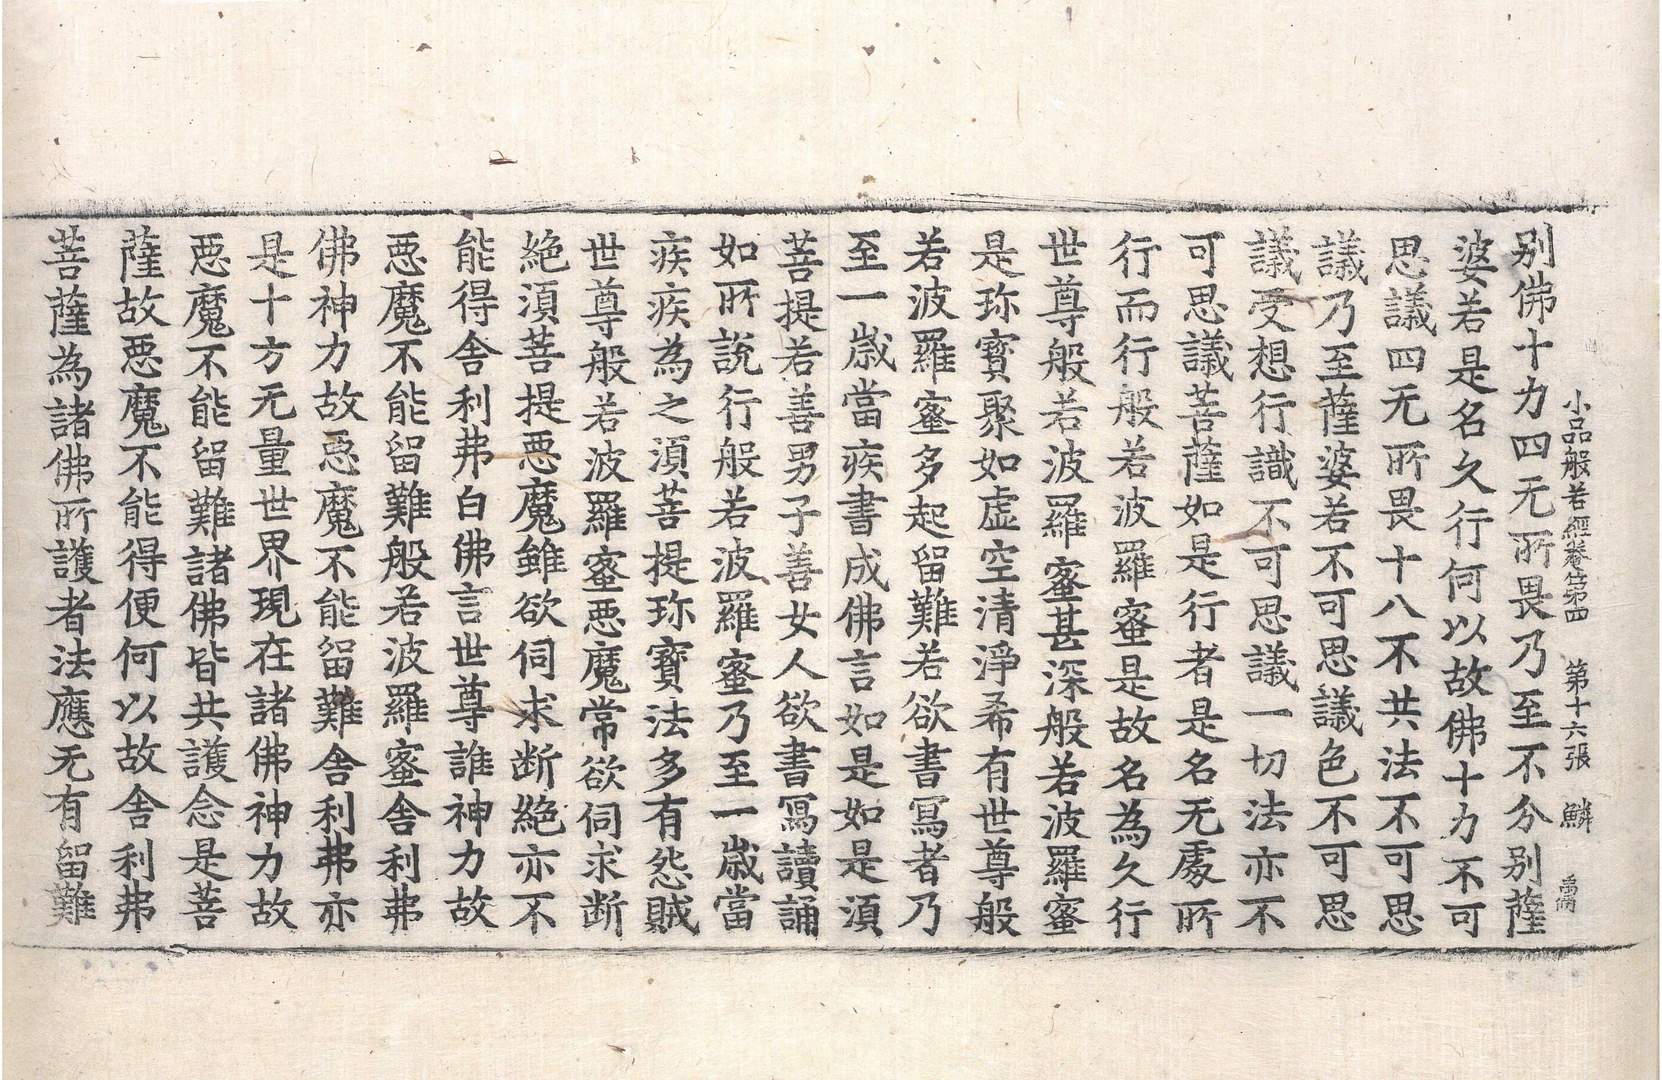 小品般若經卷第四　第十六張　鱗
别佛十力四无所畏乃至不分别薩
婆若是名久行何以故佛十力不可
思議四无所畏十八不共法不可思
議乃至薩婆若不可思議色不可思
議受想行識不可思議一切法亦不
可思議菩薩如是行者是名无處所
行而行般若波羅蜜是故名為久行
世尊般若波羅蜜甚深般若波羅蜜
是珎寳聚如虚空清淨希有世尊般
若波羅蜜多起留難若欲書寫者乃
至一歲當疾書成佛言如是如是湏
菩提若善男子善女人欲書寫讀誦
如所說行般若波羅蜜乃至一歲當
疾疾為之湏菩提珎寳法多有怨賊
世尊般若波羅蜜惡魔常欲伺求断
絕湏菩提惡魔雖欲伺求断絕亦不
能得舎利弗白佛言世尊誰神力故
惡魔不能留難般若波羅蜜舎利弗
佛神力故惡魔不能留難舎利弗亦
是十方无量世界現在諸佛神力故
惡魔不能留難諸佛皆共護念是菩
薩故惡魔不能得便何以故舎利弗
菩薩為諸佛所護者法應无有留難